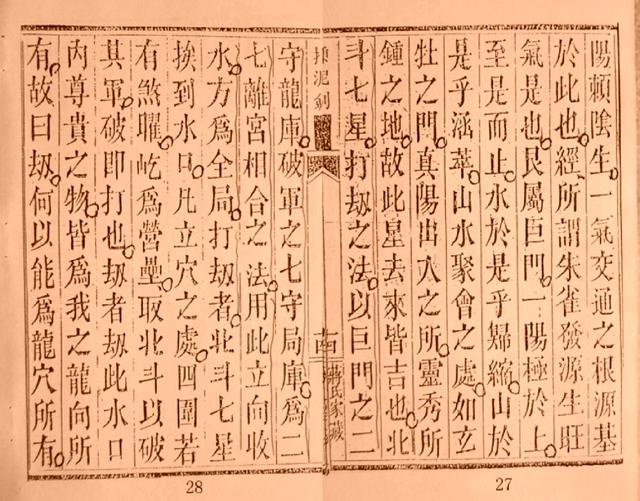 陽賴陰生。一氣交通之根源基
於此也。經所謂朱雀發源生旺
氣是也。艮屬巨門。一陽極於上。
至是而止。水於是乎歸縮。山於
是乎涵萃。山水聚會之處。如玄
牡之門。真陽出入之所。靈秀所
鍾之地。故此星去來皆吉也。北
斗七星。打刼之法。以巨門之二
泥劍
蔣氏家藏
守龍庫。破軍之七守局庫。爲二
七離宮相合之法。用此立向收
水。方爲全局。打刼者。北斗七星
挨到水口。凡立穴之處。四圍若
有煞曜。屹爲營壘。取北斗以破
其軍。破即打也。刼者刼此水口
內尊貴之物。皆爲我之龍向所
有。故曰刼。何以能爲龍穴所有。
28
27